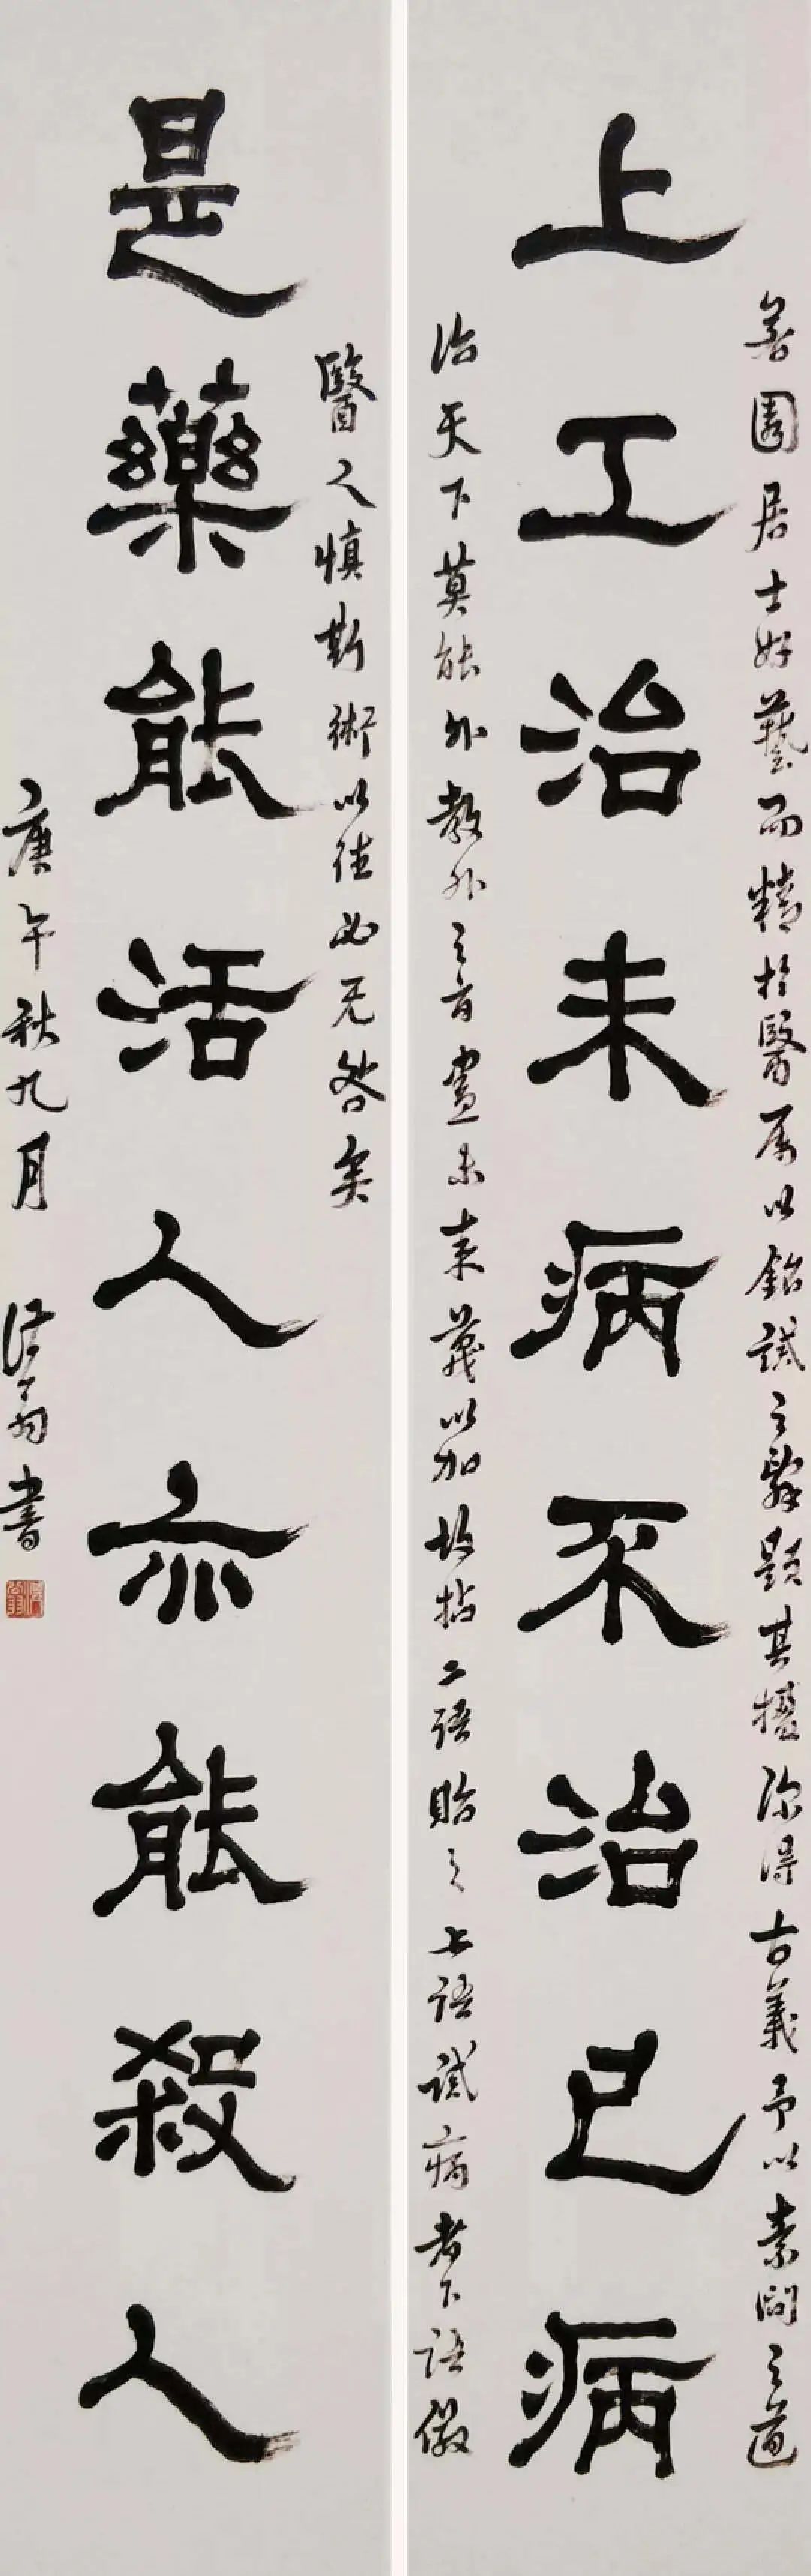 善園居士好藝而精於醫屬以銘誡之辭題其楹深得古義予以素問之道
上工治未病不治已病
治天下莫能外教外之旨盡未來義以加故拈二語貽之上語誡病者下語儆
醫人慎斯術以往必无咎矣
是藥能活人亦能殺人
庚午秋九月 翁書